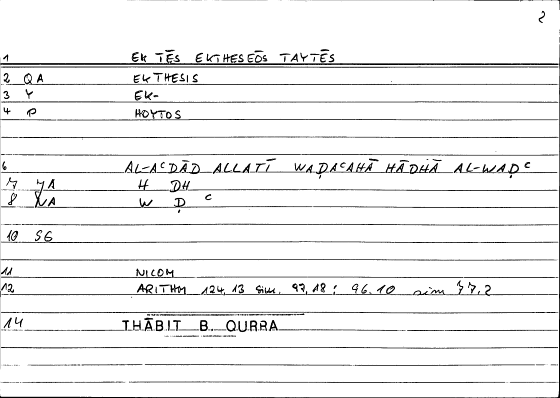 2
1 EK TĒS EKTHESEŌS TAYTĒS
2 QA EKTHESIS
3 Y EK-
4 P HOYTOS
6 AL-AᶜDĀD ALLATĪ WAḌAᶜAHĀ HĀDHĀ AL-WAḌᶜ
7 YA H DH
8 NA W Ḍ ᶜ
10 SG
11 NICOM
12 ARITHM 124,13 sim. 97,18; 96.10 sim 77,2
14 THĀBIT B. QURRA